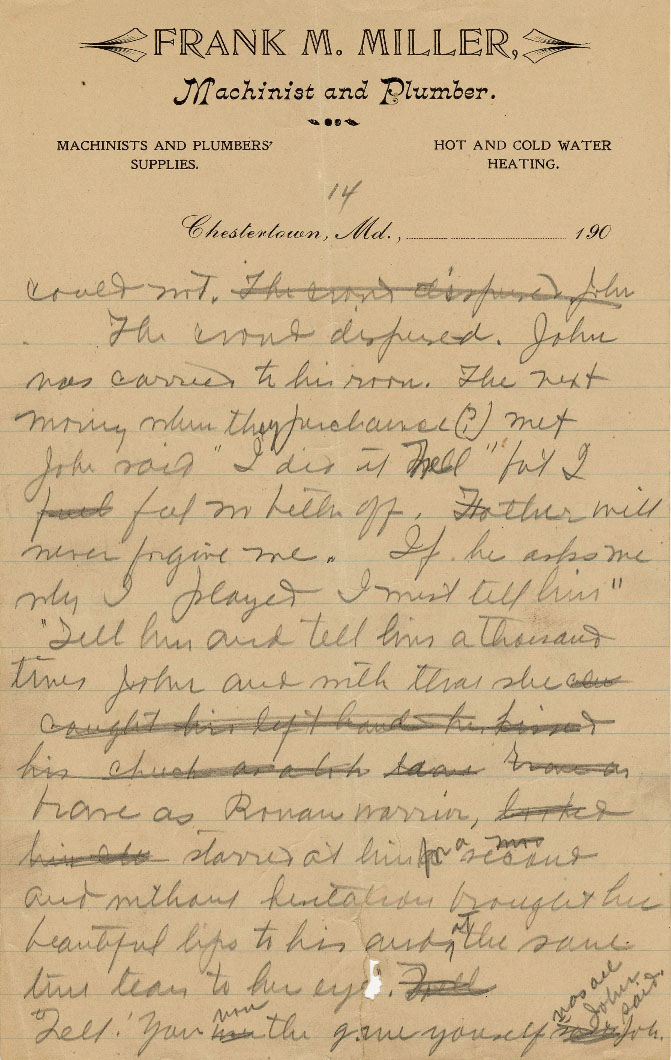 FRANK M. MILLER,
Machinist and Plumber.
MACHINISTS AND PLUMBERS' SUPPLIES.
HOT AND COLD WATER HEATING.
14
Chestertown, Md., 190
could not. The crowd dispersed John
The crowd dispersed. John
was carried to his room. The next
morning when they perchance (?) met
John said "I did it Nell" but I
feel feel no better off. Father will
never forgive me. If he asks me
why I played I must tell him"
"Tell him and tell him a thousand
times John and with that she
caught his left hand he kissed
his cheek as a
brave as Roman warrior, looked
him starred at him for a second
and without hesitation brought his
beautiful lips to his and at the same
time tears to her eyes. Nell
"Nell! You won the game yourself was all John said.